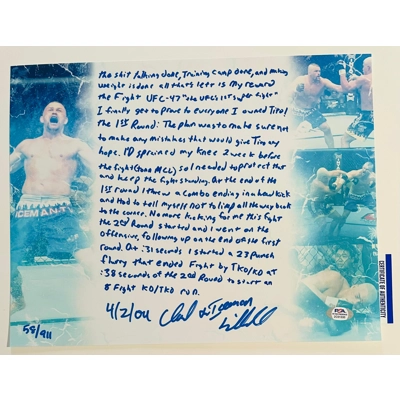 the shit talking done, Training camp done, and making
weight is done all thats left is my reward
the Fight UFC-47 "the UFC's 1st super fight"
I finally get to prove to everyone I owned Tito!
The 1st Round: The plan was to make sure not
to make any mistakes that would give Tito any
hope. I'D sprained my Knee 2 week before
the fight (torn MCL) so I needed to protect that
and keep the fight standing. At the end of the
1st round I threw a combo ending in a head Kick
and Had to tell myself not to limp all the way back
to the corner. No more kicking for me this fight
the 2nd Round started and I went on the
offensive, following up on the end of the first
round. At :31 seconds I started a 23 Punch
flurry that ended Fight by TKO/KO at
:38 seconds of the 2nd Round to start an
8 Fight KO/TKO run.
4/2/04 Chuck Iceman Liddell
55/911
ICEMAN
PSA
CERTIFICATE OF AUTHENTICITY